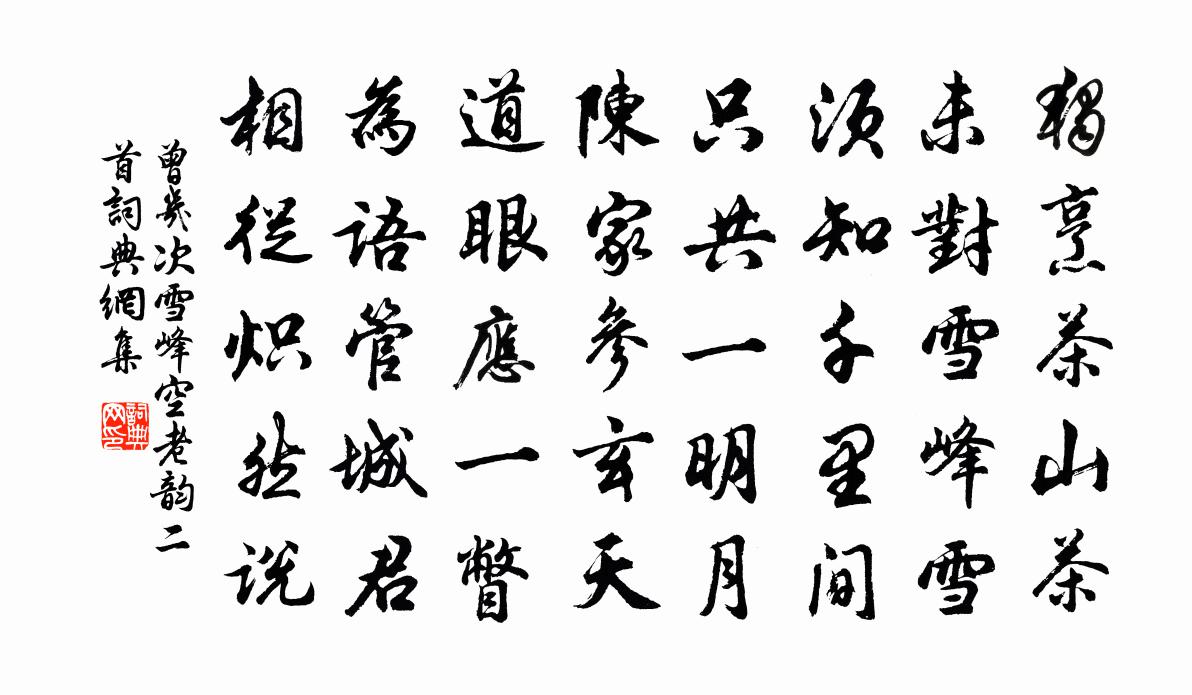 獨烹茶山茶
未對雪峰雪
須知千里間
只共一明月
陳家參玄天
道眼應一瞥
為語管城君
相從熾然說
曾幾次雪峰空老韵二
首詞典網集
詞典
网印